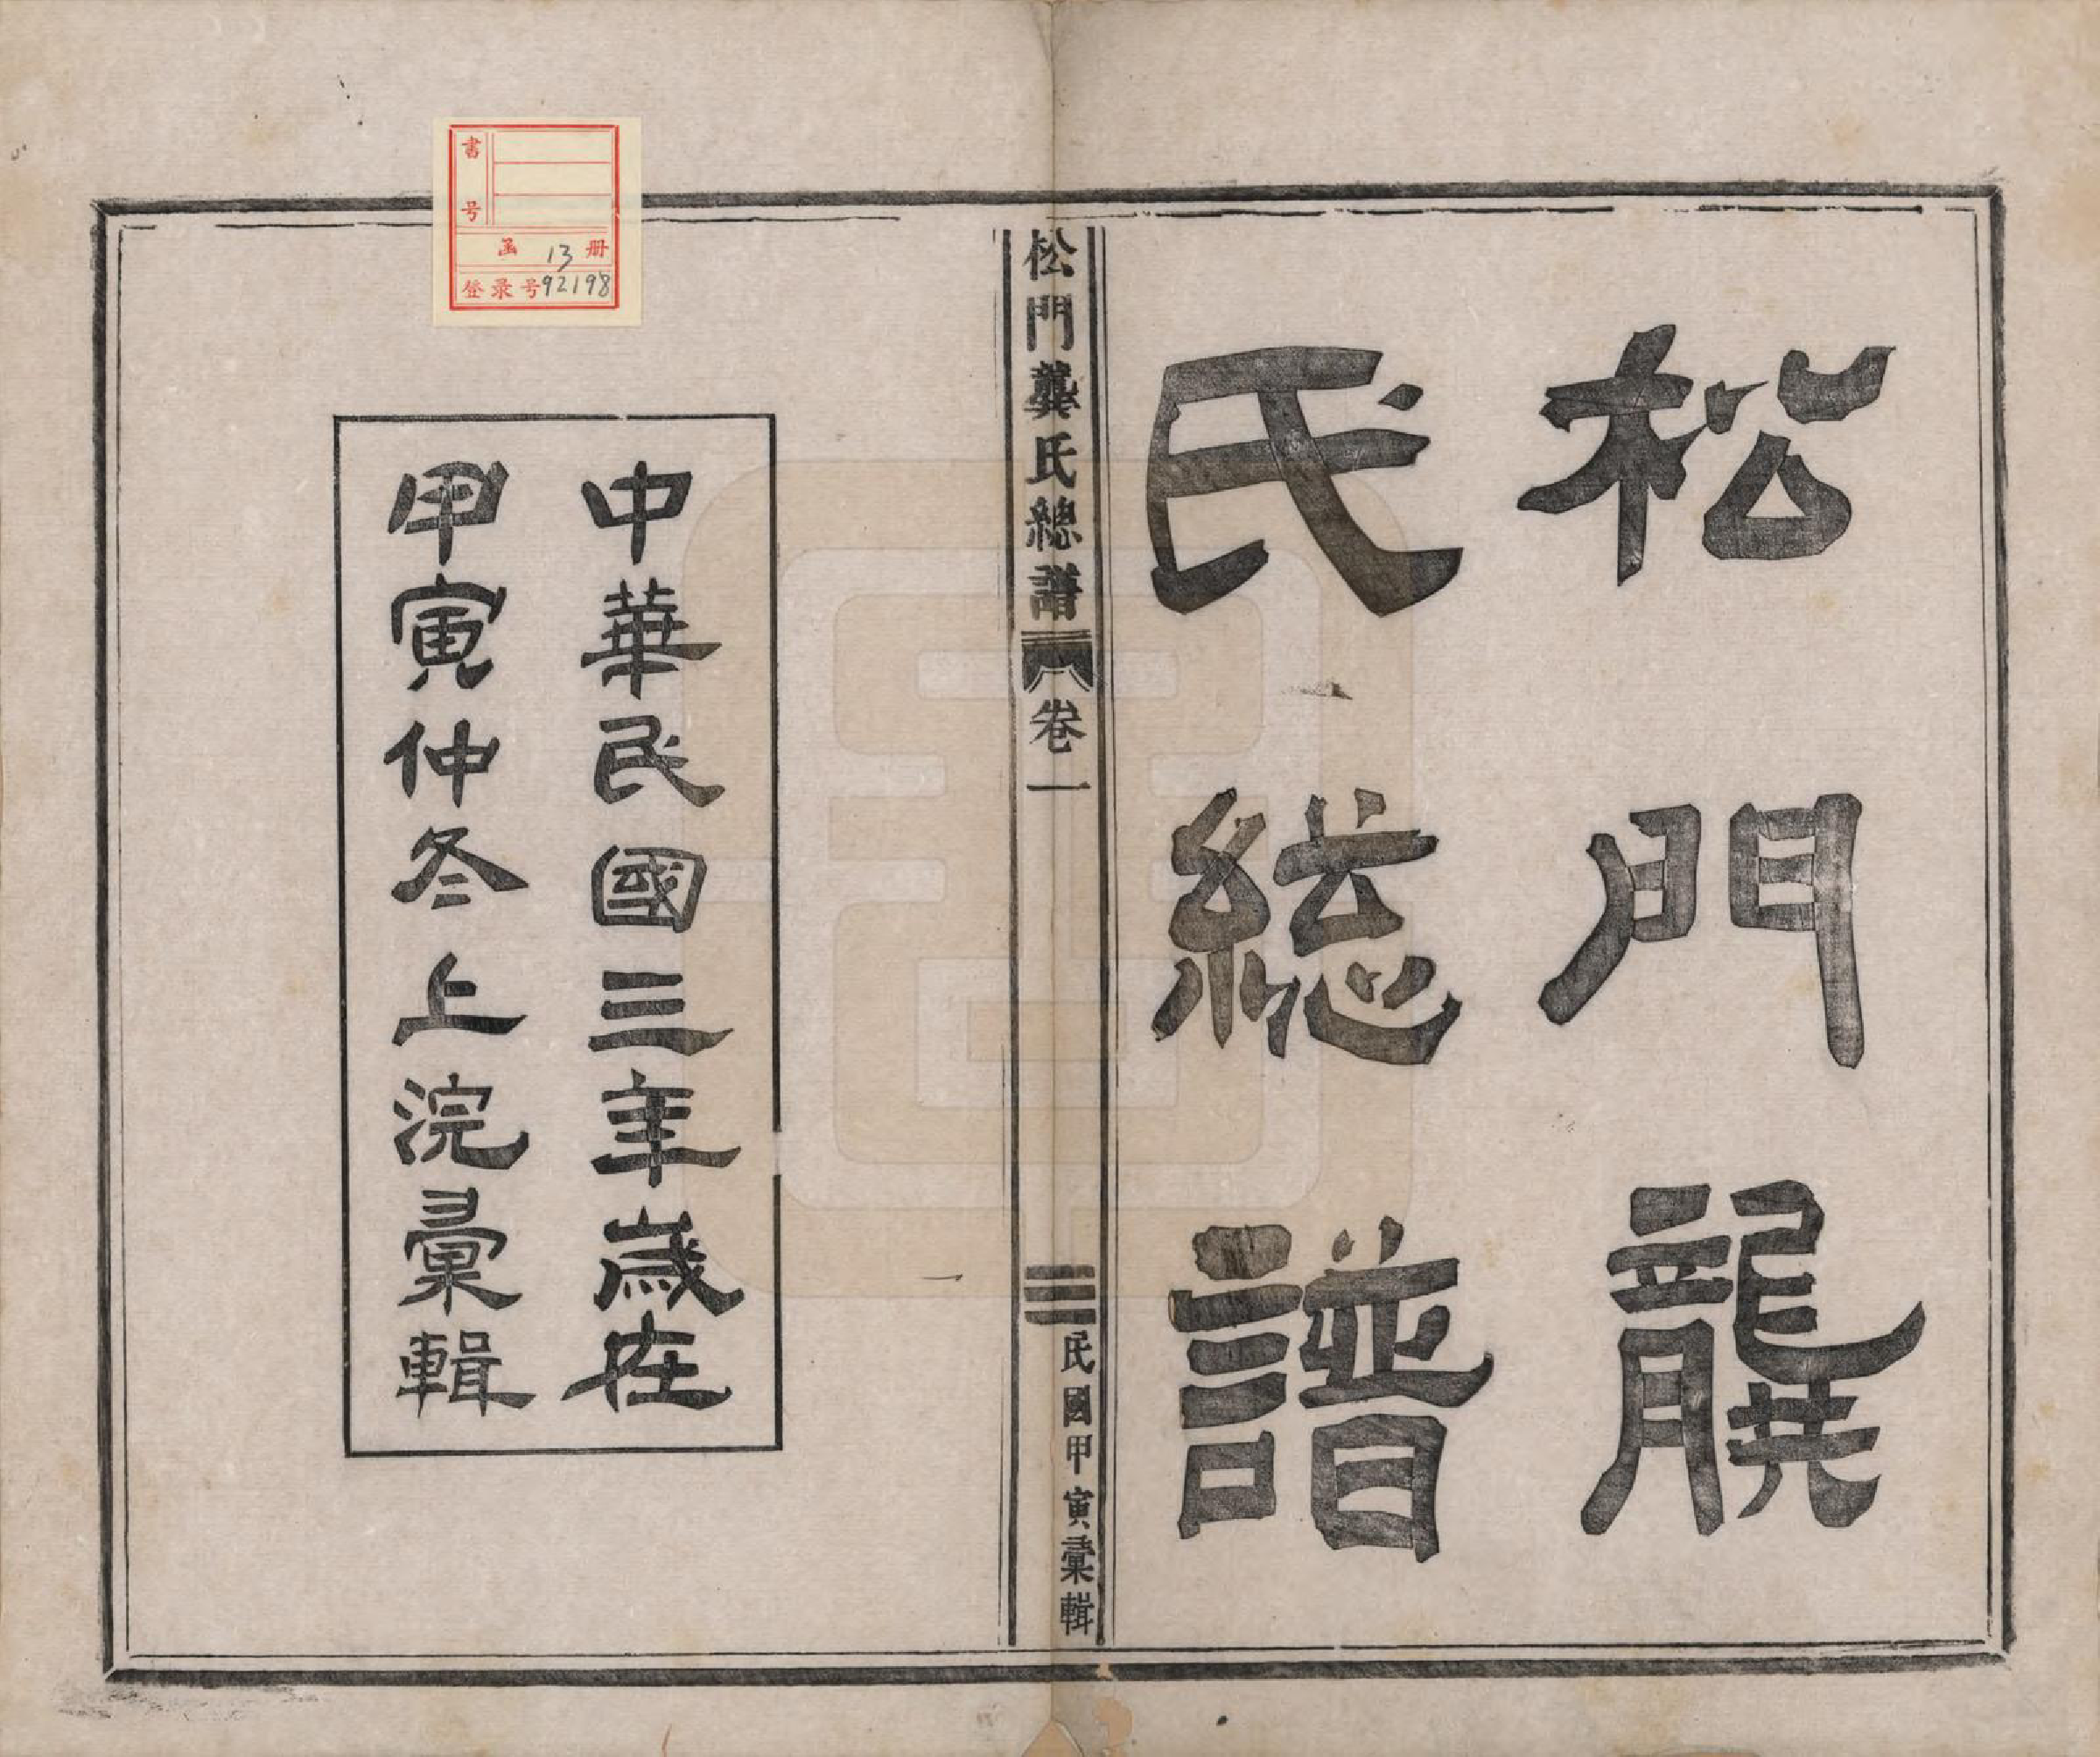 松門龔
氏總譜
松門龔氏總譜
卷一
民國甲寅彙輯
中華民國三年歲在
甲寅仲冬上浣彙輯
書号
函 13 册
登录号92198